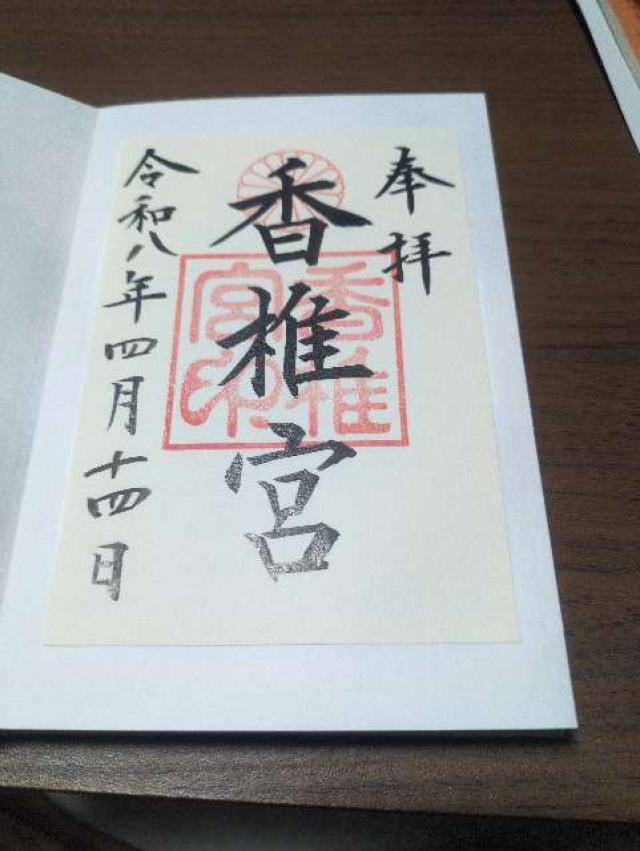 奉拝
香椎宮
香椎宮印
令和八年四月十四日